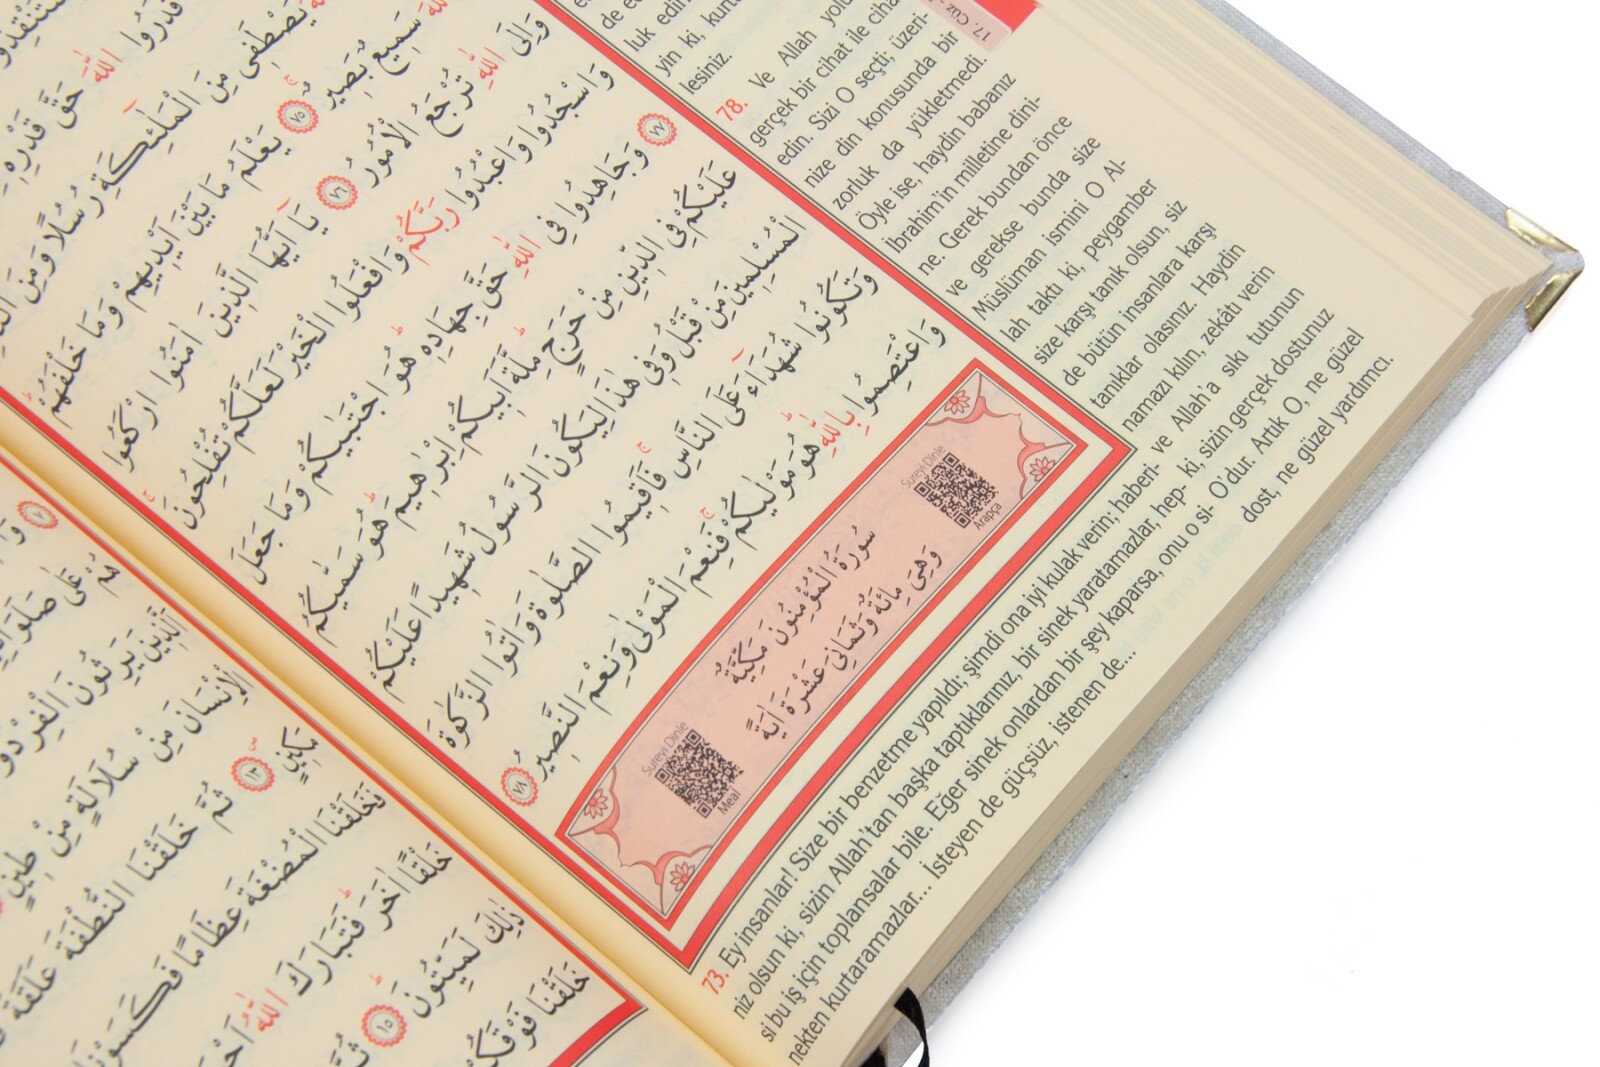 قَدَرُوا اللّٰهَ حَقَّ قَدْرِهِ
يَصْطَفِى مِنَ الْمَلٰٓئِكَةِ رُسُلًا وَمِنَ
سَمِيعٌ بَصِيرٌ ﴿٧٥﴾ يَعْلَمُ مَا بَيْنَ اَيْدِيهِمْ وَمَا خَلْفَهُمْ
وَاِلَى اللّٰهِ تُرْجَعُ الْاُمُورُ ﴿٧٦﴾ يَٓا اَيُّهَا الَّذِينَ اٰمَنُوا ارْكَعُوا
وَاسْجُدُوا وَاعْبُدُوا رَبَّكُمْ وَافْعَلُوا الْخَيْرَ لَعَلَّكُمْ تُفْلِحُونَ
﴿٧٧﴾ وَجَاهِدُوا فِى اللّٰهِ حَقَّ جِهَادِهٖ هُوَ اجْتَبٰيكُمْ وَمَا جَعَلَ
عَلَيْكُمْ فِى الدِّينِ مِنْ حَرَجٍ مِلَّةَ اَبِيكُمْ اِبْرٰهِيمَ هُوَ سَمّٰيكُمُ
الْمُسْلِمِينَ مِنْ قَبْلُ وَفِى هٰذَا لِيَكُونَ الرَّسُولُ شَهِيدًا عَلَيْكُمْ
وَتَكُونُوا شُهَدَٓاءَ عَلَى النَّاسِ فَاَقِيمُوا الصَّلٰوةَ وَاٰتُوا الزَّكٰوةَ
وَاعْتَصِمُوا بِاللّٰهِ هُوَ مَوْلٰيكُمْ فَنِعْمَ الْمَوْلٰى وَنِعْمَ النَّصِيرُ ﴿٧٨﴾
سُورَةُ الْمُؤْمِنُونَ مَكِّيَّةٌ
وَهِىَ مِائَةٌ وَثَمَانِىَ عَشْرَةَ اٰيَةً
Sureyi Dinle
Arapça
Sureyi Dinle
Meal
17. Cüz
luk edin
yin ki, kurt
lesiniz.
78. Ve Allah yol
gerçek bir cihat ile ciha
edin. Sizi O seçti; üzeri-
nize din konusunda bir
zorluk da yükletmedi.
Öyle ise, haydin babanız
İbrahim'in milletine dini-
ne. Gerek bundan önce
ve gerekse bunda size
Müslüman ismini O Al-
lah taktı ki, peygamber
size karşı tanık olsun, siz
de bütün insanlara karşı
tanıklar olasınız. Haydin
namazı kılın, zekâtı verin
ve Allah'a sıkı tutunun
ki, sizin gerçek dostunuz
O'dur. Artık O, ne güzel
dost, ne güzel yardımcı.
73. Ey insanlar! Size bir benzetme yapıldı; şimdi ona iyi kulak verin; haberi-
niz olsun ki, sizin Allah'tan başka taptıklarınız, bir sinek yaratamazlar, hep-
si bu iş için toplansalar bile. Eğer sinek onlardan bir şey kaparsa, onu o si-
nekten kurtaramazlar... İsteyen de güçsüz, istenen de...
هُمْ عَلٰى صَلَوَاتِهِمْ
الَّذِينَ يَرِثُونَ الْفِرْدَوْ
الْاِنْسَانَ مِنْ سُلَالَةٍ مِنْ طِينٍ
مَكِينٍ ﴿١٣﴾ ثُمَّ خَلَقْنَا النُّطْفَةَ عَلَقَةً
فَخَلَقْنَا الْمُضْغَةَ عِظَامًا فَكَسَوْنَا
خَلْقًا اٰخَرَ فَتَبَارَكَ اللّٰهُ
ذٰلِكَ لَمَيِّتُونَ ﴿١٥﴾ ثُمَّ
خَلَقْنَا فَوْقَكُمْ